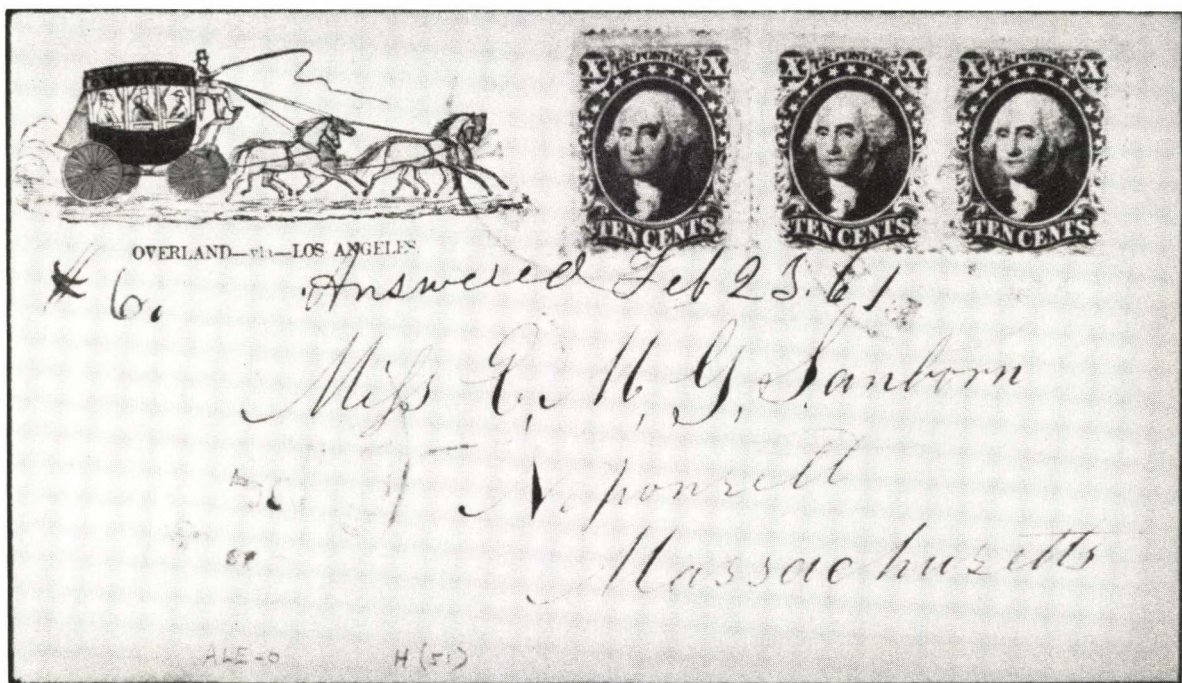 OVERLAND
X U.S. POSTAGE X
TEN CENTS
X U.S. POSTAGE X
TEN CENTS
X U.S. POSTAGE X
TEN CENTS
OVERLAND—via—LOS ANGELES
# 6. Answered Feb 23. 61
Miss E. M. G. Sanborn
Massachusetts
ALE-O H (51)